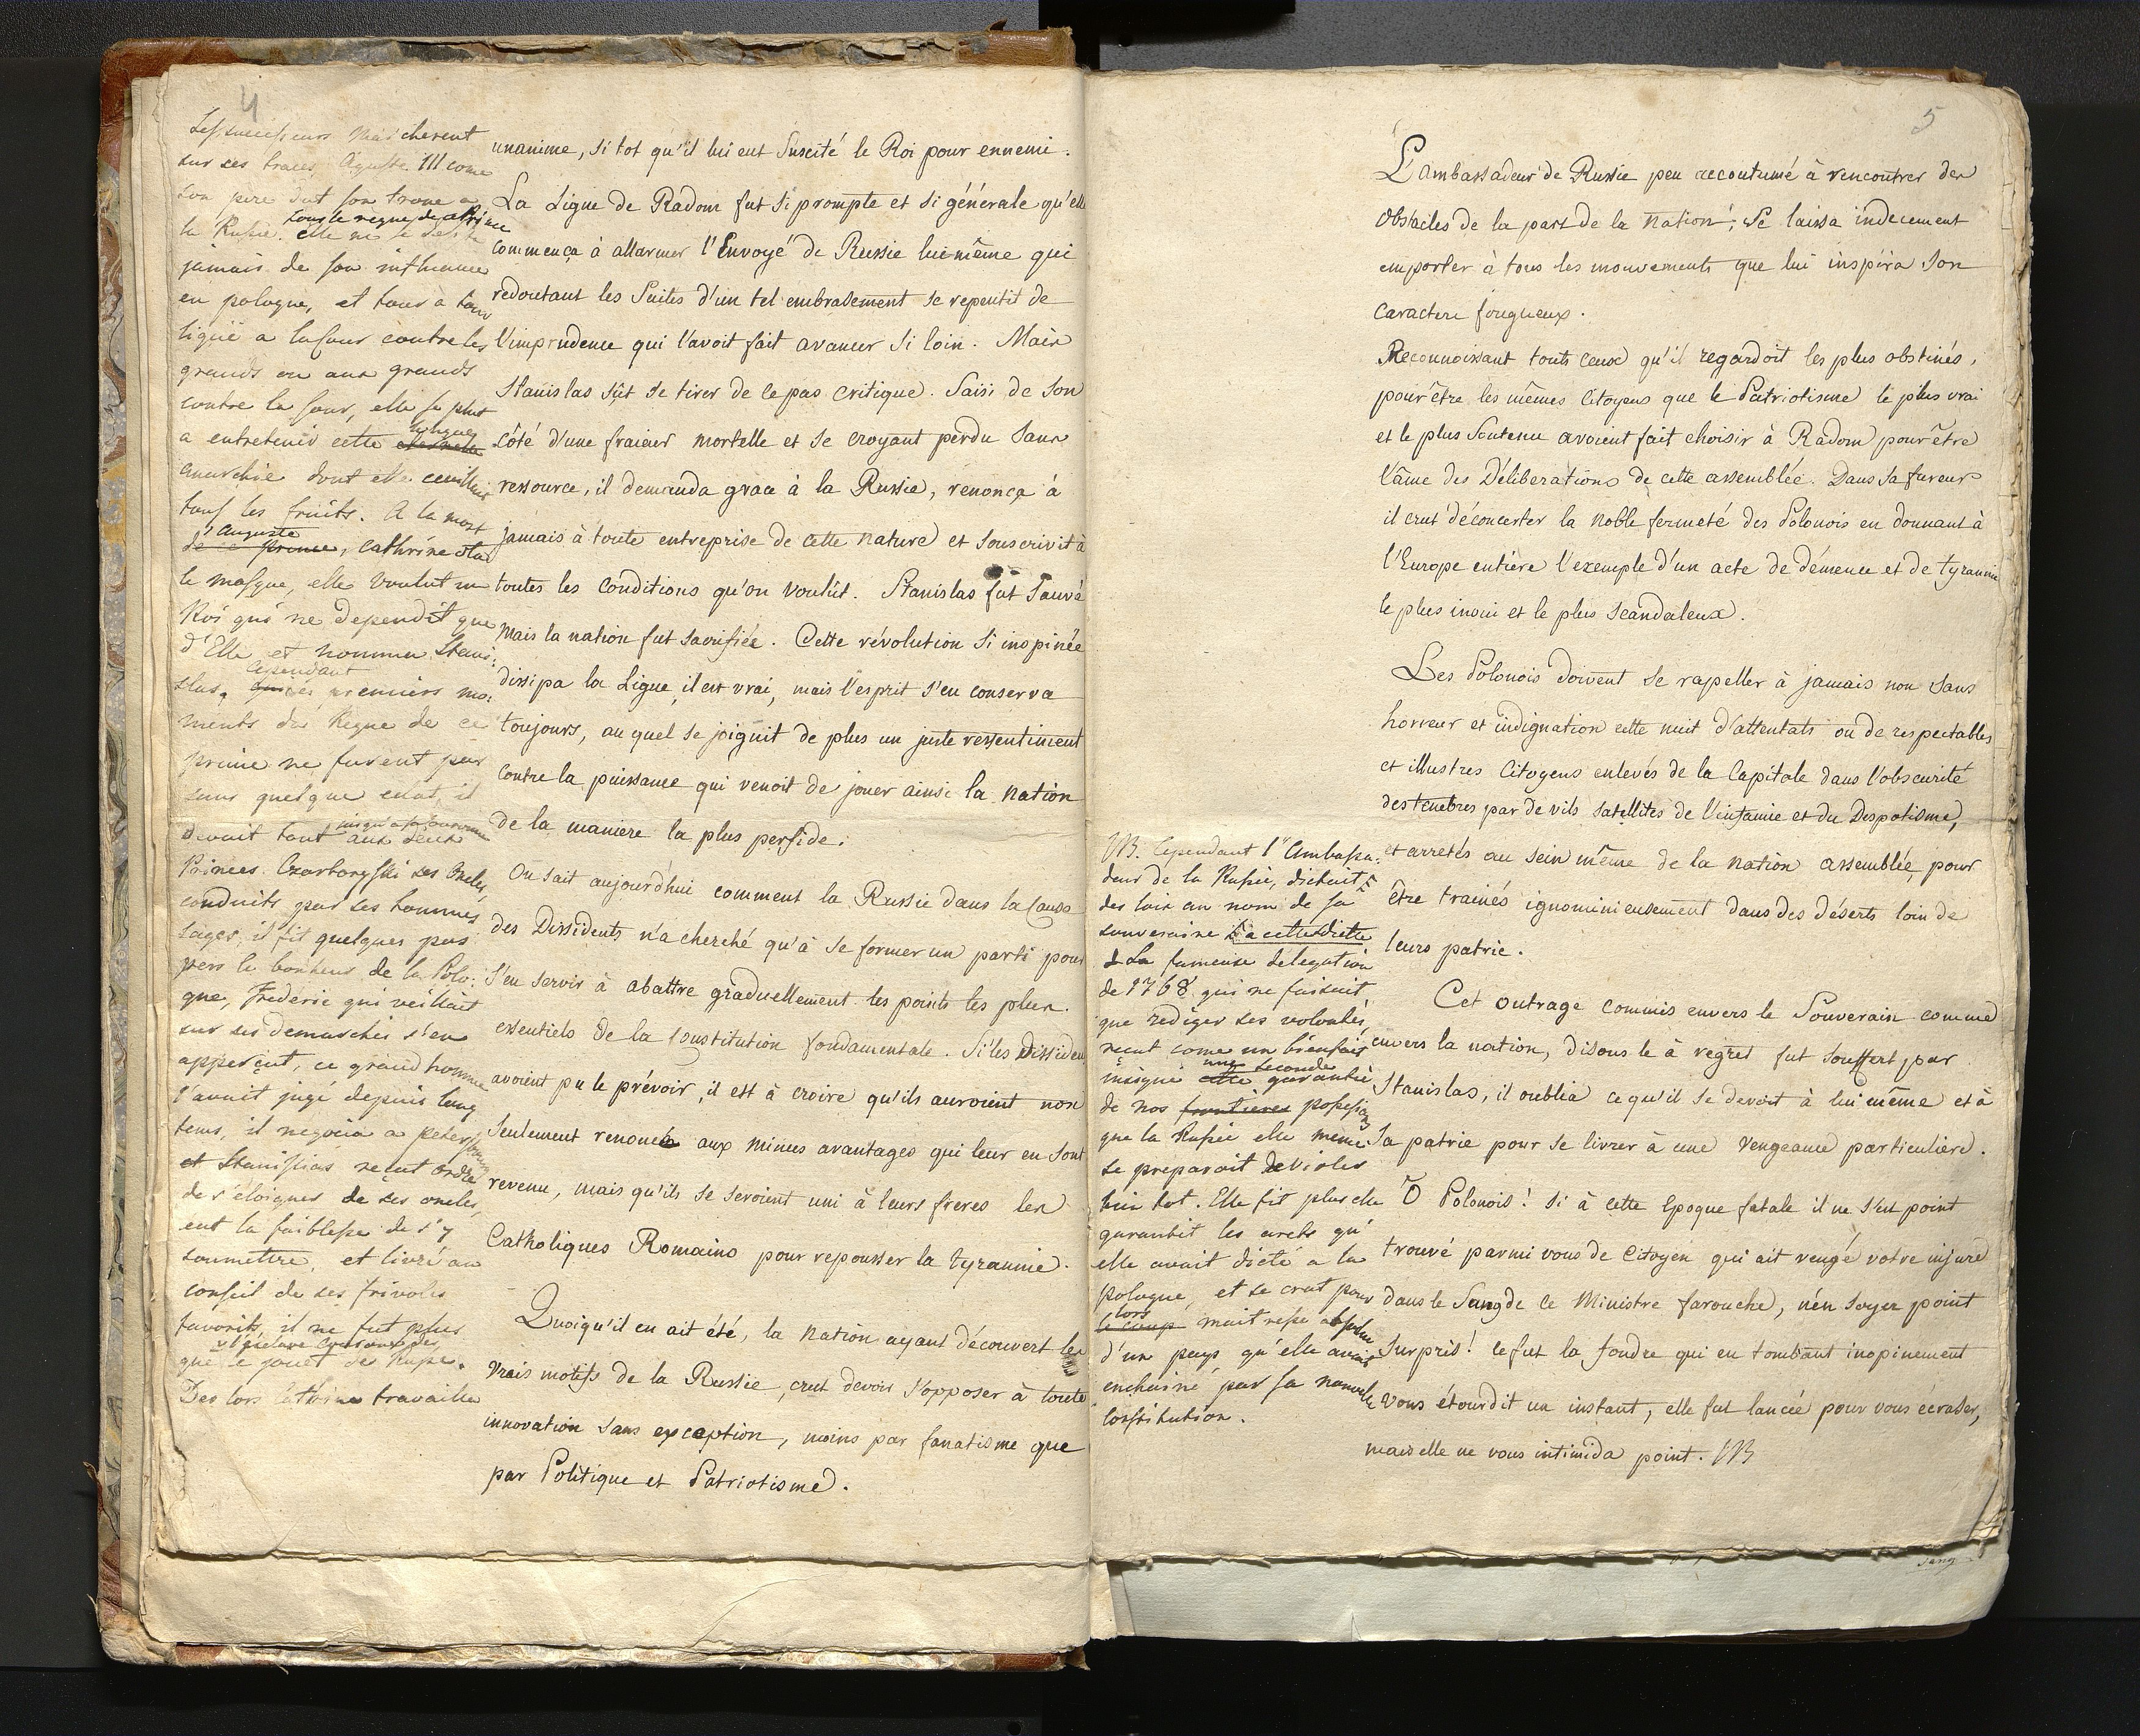 4
Les successeurs marcherent
sur ses traces, Auguste III come
son pere dut son trone a
la Russie. sous le regne de ce Prince
elle ne se desista
jamais de son influence
en pologne, et tour à tour
liguée a la Cour contre les
grands ou aux grands
contre la Cour, elle se plut
a entretenir cette longue
anarchie dont elle cueilloit
tous les fruits. A la mort
d'Auguste
de ce prince, Cathrine ota
le masque, elle voulut un
Roi qui ne dependit que
d'Elle et nomma Stanis:
cependant
slas. les premiers mo:
ments du Regne de ce
prince ne furent pas
sans quelque eclat, il
devait tout jusqu'a sa couronne
aux deux
Princes Czartoryski ses Oncles,
conduits par ses hommes
sages, il fit quelques pas
vers le bonheur de la Polo:
gne, Frederic qui veillait
sur ses demarches s'en
apperçut, ce grand homme
l'avait jugé depuis long
tems, il negocia a petersbourg
et Stanislas reçut ordre
de s'éloigner de ses oncles,
eut la faiblesse de s'y
soumettre, et livré au
conseil de ses frivoles
favoris, il ne fut plus
que le jouet de Russie.
Des lors Cathrine travailla
unanime, si tot qu'il lui eut Suscité le Roi pour ennemi.
La Ligue de Radom fut si prompte et si générale qu'elle
commença à allarmer l'Envoyé de Russie lui même qui
redoutant les Suites d'un tel embrasement se repentit de
l'imprudence qui l'avoit fait avancer si loin. Mais
Stanislas sût se tirer de ce pas critique. Saisi de Son
côté d'une fraieur mortelle et se croyant perdu sans
ressource, il demanda grace à la Russie, renonça à
jamais à toute entreprise de cette nature et souscrivit à
toutes les Conditions qu'on voulût. Stanislas fut Sauvé
mais la nation fut sacrifiée. Cette révolution si inopinée
dissipa la Ligue, il est vrai, mais l'esprit s'en conserva
toujours, au quel se joignit de plus un juste ressentiment
contre la puissance qui venoit de jouer ainsi la nation
de la maniere la plus perfide.
On sait aujourd'hui comment la Russie dans la Cause
des Dissidents n'a cherché qu'à se former un parti pour
s'en servir à abattre graduellement les points les plus
essentiels de la Constitution fondamentale. Si les Dissidens
avoient pu le prévoir, il est à croire qu'ils auroient non
seulement renoncé aux minces avantages qui leur en sont
revenu, mais qu'ils se seroient uni à leurs freres les
Catholiques Romains pour repousser la tyrannie.
Quoiqu'il en ait été, la nation ayant découvert les
vrais motifs de la Russie, crut devoir s'opposer à toute
innovation sans exception, moins par fanatisme que
par Politique et Patriotisme.
5
L'ambassadeur de Russie peu accoutumé à rencontrer des
obstacles de la part de la nation, se laissa indecement
emporter à tous les mouvements que lui inspira son
caractere fougueux.
Reconnoissant touts ceux qu'il regardoit les plus obstinés,
pour être les mêmes Citoyens que le Patriotisme le plus vrai
et le plus Soutenu avoient fait choisir à Radom pour être
l'âme des Déliberations de cette assemblée. Dans sa fureur
il crut déconcerter la noble fermeté des Polonois en donnant à
l'Europe entière l'exemple d'un acte de démence et de tyrannie
le plus inoui et le plus Scandaleux.
Les Polonois doivent se rappeller à jamais non sans
horreur et indignation cette nuit d'attentats ou de respectables
et illustres Citoyens enlevés de la Capitale dans l'obscurité
des tenebres par de vils satellites de l'infamie et du Despotisme,
et arretés au sein même de la nation assemblée, pour
être trainés ignominieusement dans des déserts loin de
leurs patrie.
Cet outrage commis envers le Souverain comme
envers la nation, disons le à regret fut souffert par
Stanislas, il oublia ce qu'il se devoit à lui même et à
sa patrie pour se livrer à une vengeance particuliere.
O Polonois! si à cette Epoque fatale il ne s'en point
trouvé parmi vous de Citoyen qui ait vengé votre injure
dans le Sang de ce Ministre farouche, n'en soyez point
surpris! ce fut la foudre qui en tombant inopinement
vous étourdit un instant, elle fut lancée pour vous écraser,
mais elle ne vous intimida point. NB
NB. Cependant l'Ambassa:
deur de la Russie, dictait
des loix au nom de sa
souveraine à cette diette
La fameuse delegation
de 1768 qui ne faisait
que rediger ses volontés,
reçut come un bienfait
insigne une seconde
cette garantie
de nos frontieres possessions
que la Russie elle même
se preparait de violer
bien tot. Elle fit plus elle
garantit les arrets qu'
elle avait dicté a la
pologne, et se crut pour
lors
le coup maitresse absolue
d'un pays qu'elle avait
enchainé par sa nouvelle
Constitution.